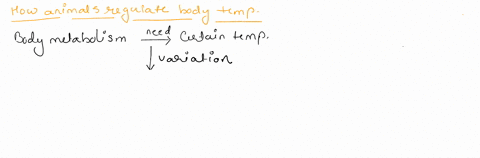 How animals regulate body temp.
Body metabolism need → Certain temp.
↓ variation